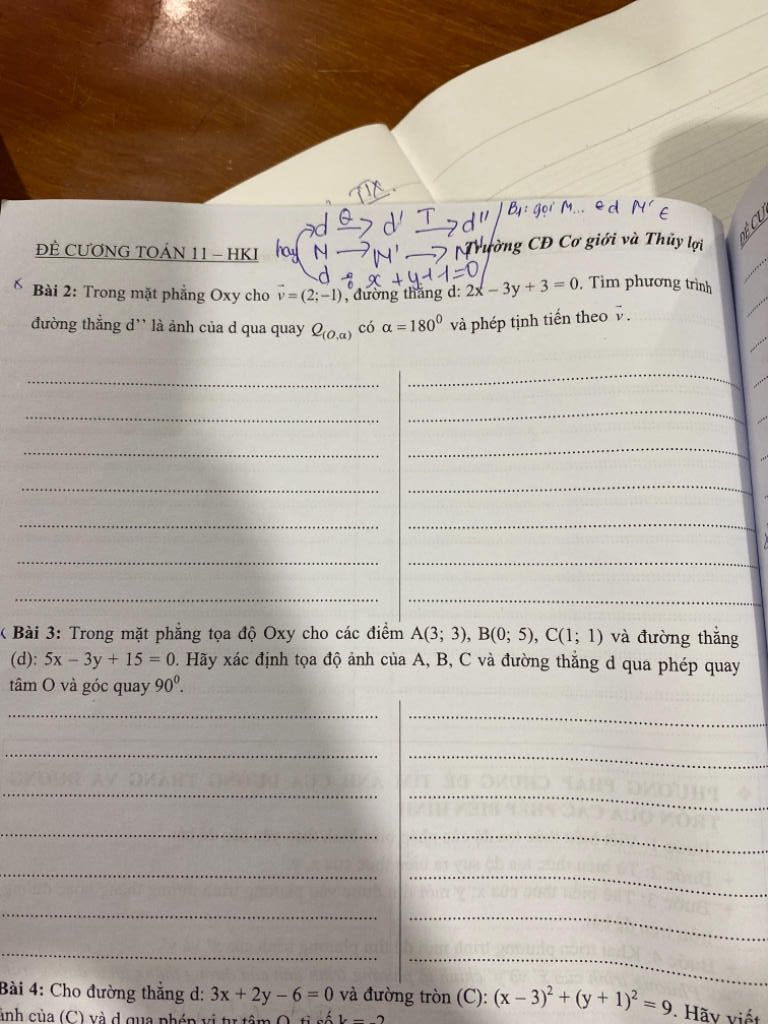 TIX.
d Q→ d' T→ d'' / B1: gọi M... ∈ d M' ∈
hay M → M' → M''
d: x + y + 1 = 0
ĐỀ CƯƠNG TOÁN 11 – HKI
Trường CĐ Cơ giới và Thủy lợi
Bài 2: Trong mặt phẳng Oxy cho v⃗ = (2;−1), đường thẳng d: 2x – 3y + 3 = 0. Tìm phương trình
đường thẳng d’’ là ảnh của d qua quay Q(O,α) có α = 180⁰ và phép tịnh tiến theo v⃗.
Bài 3: Trong mặt phẳng tọa độ Oxy cho các điểm A(3; 3), B(0; 5), C(1; 1) và đường thẳng
(d): 5x – 3y + 15 = 0. Hãy xác định tọa độ ảnh của A, B, C và đường thẳng d qua phép quay
tâm O và góc quay 90⁰.
Bài 4: Cho đường thẳng d: 3x + 2y – 6 = 0 và đường tròn (C): (x – 3)² + (y + 1)² = 9. Hãy viết
ảnh của (C) và d qua phép vị tự tâm O, tỉ số k = -2